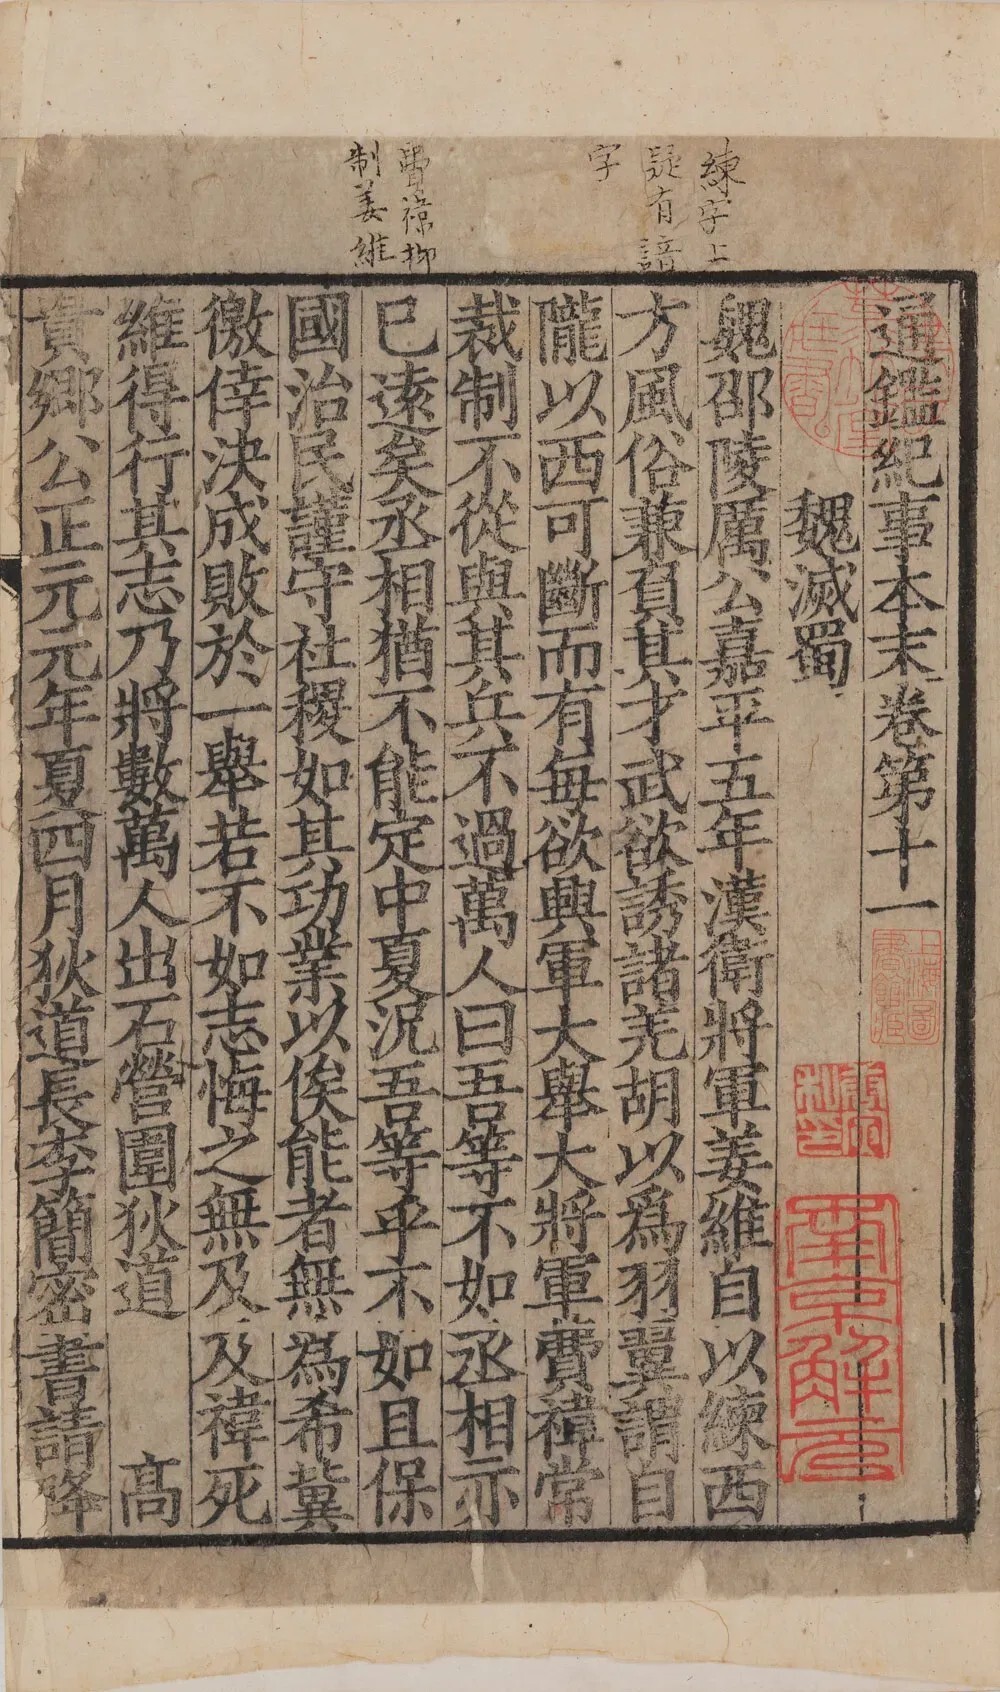 練字上
疑有諳
字
費禕抑
制姜維
通鑑紀事本末卷第十一
魏滅蜀
魏邵陵厲公嘉平五年漢衛將軍姜維自以練西
方風俗兼負其才武欲誘諸羌胡以爲羽翼謂自
隴以西可斷而有每欲興軍大舉大將軍費禕常
裁制不從與其兵不過萬人曰吾等不如丞相亦
已遠矣丞相猶不能定中夏況吾等乎不如且保
國治民謹守社稷如其功業以俟能者無為希冀
徼倖決成敗於一舉若不如志悔之無及及禕死
維得行其志乃將數萬人出石營圍狄道 高
貴鄉公正元元年夏四月狄道長李簡密書請降
上海圖書館藏
南京解元